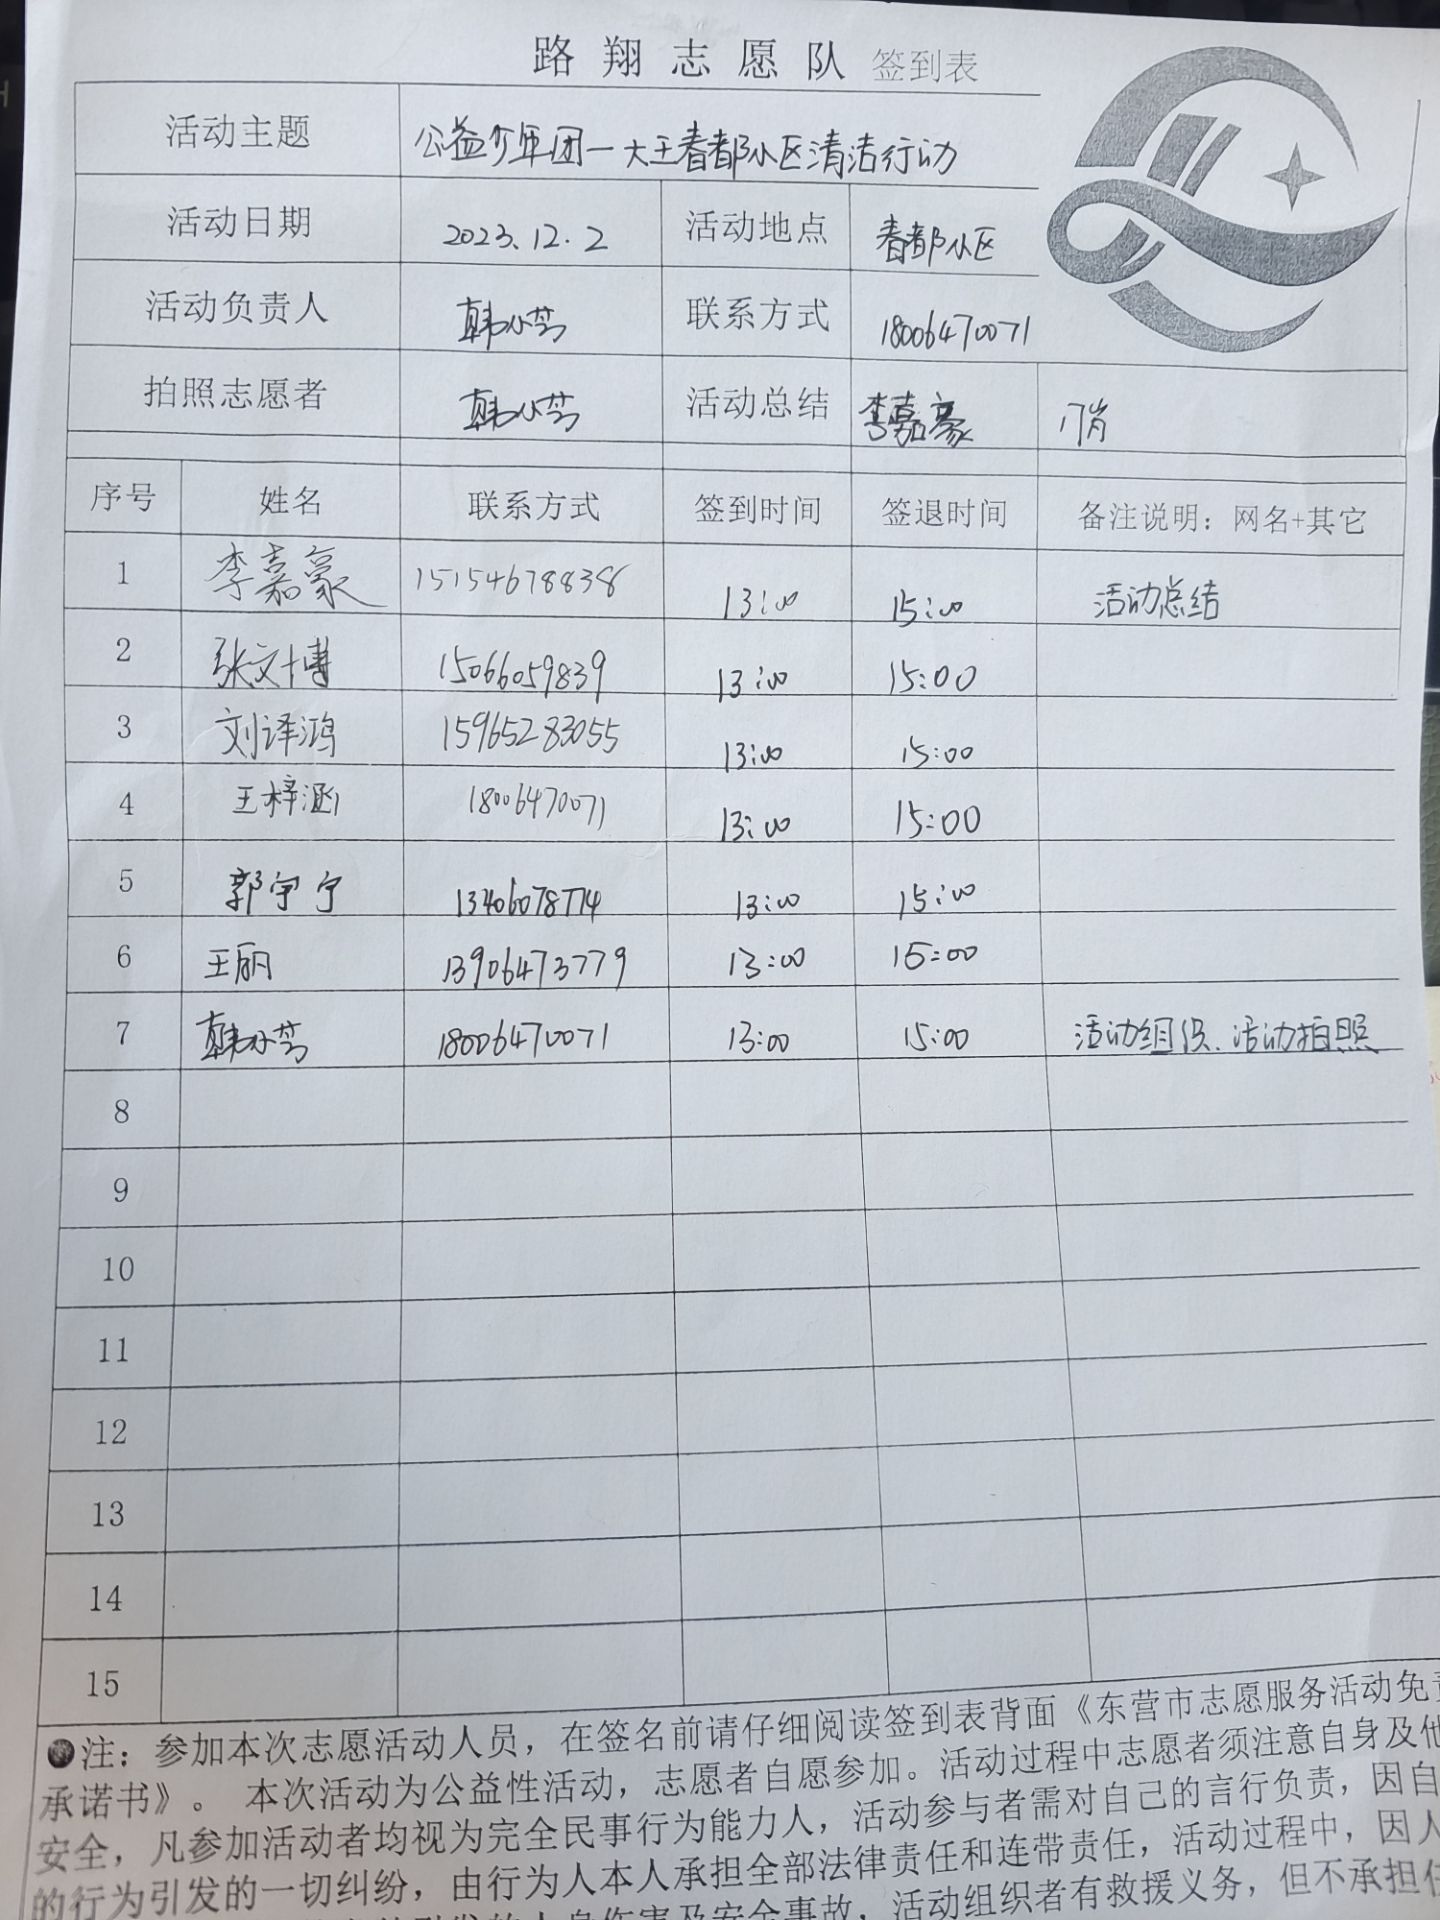 路翔志愿队 签到表
活动主题 公益少年团一大王春都小区清洁行动
活动日期 2023.12.2 活动地点 春都小区
活动负责人 联系方式 18006470071
拍照志愿者 活动总结 李嘉豪
序号 姓名 联系方式 签到时间 签退时间 备注说明：网名+其它
1 李嘉豪 15154678838 13:00 15:00 活动总结
2 张文博 15066059839 13:00 15:00
3 刘译鸿 15965283055 13:00 15:00
4 王梓涵 18006470071 13:00 15:00
5 郭宇宁 13406078774 13:00 15:00
6 王丽 13906473779 13:00 15:00
7 18006470071 13:00 15:00 活动组织、活动拍照
8
9
10
11
12
13
14
15
注：参加本次志愿活动人员，在签名前请仔细阅读签到表背面《东营市志愿服务活动免责
承诺书》。 本次活动为公益性活动，志愿者自愿参加。活动过程中志愿者须注意自身及他
安全，凡参加活动者均视为完全民事行为能力人，活动参与者需对自己的言行负责，因自
的行为引发的一切纠纷，由行为人本人承担全部法律责任和连带责任，活动过程中，因人
引发的人身伤害及安全事故，活动组织者有救援义务，但不承担任